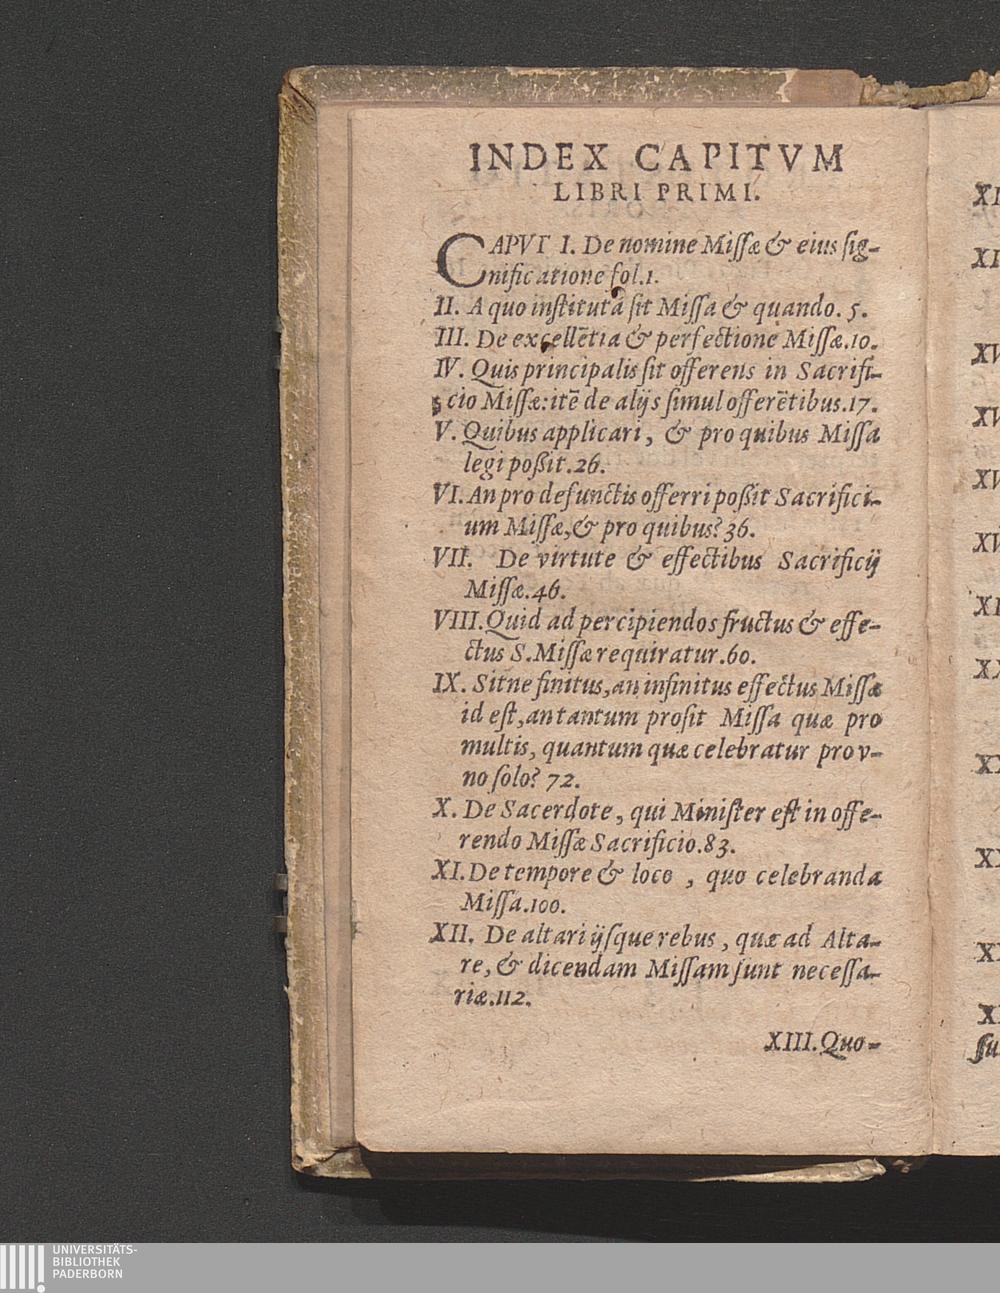 INDEX CAPITVM
LIBRI PRIMI.
CAPVT I. De nomine Miſſæ & eius ſig-
nificatione fol.1.
II. A quo inſtituta ſit Miſſa & quando. 5.
III. De excellētia & perfectione Miſſæ.10.
IV. Quis principalis ſit offerens in Sacrifi-
cio Miſſæ: itē de alijs ſimul offerētibus.17.
V. Quibus applicari, & pro quibus Miſſa
legi poßit.26.
VI. An pro defunctis offerri poßit Sacrifici-
um Miſſæ,& pro quibus? 36.
VII. De virtute & effectibus Sacrificij
Miſſæ.46.
VIII. Quid ad percipiendos fructus & effe-
ctus S. Miſſæ requiratur.60.
IX. Sitne finitus, an infinitus effectus Miſſæ
id eſt, an tantum profit Miſſa quæ pro
multis, quantum quæ celebratur pro v-
no ſolo? 72.
X. De Sacerdote, qui Miniſter eſt in offe-
rendo Miſſæ Sacrificio.83.
XI. De tempore & loco , quo celebranda
Miſſa.100.
XII. De altari ijſque rebus , quæ ad Alta-
re, & dicendam Miſſam ſunt neceſſa-
riæ.112.
XIII. Quo-
UNIVERSITÄTS-
BIBLIOTHEK
PADERBORN